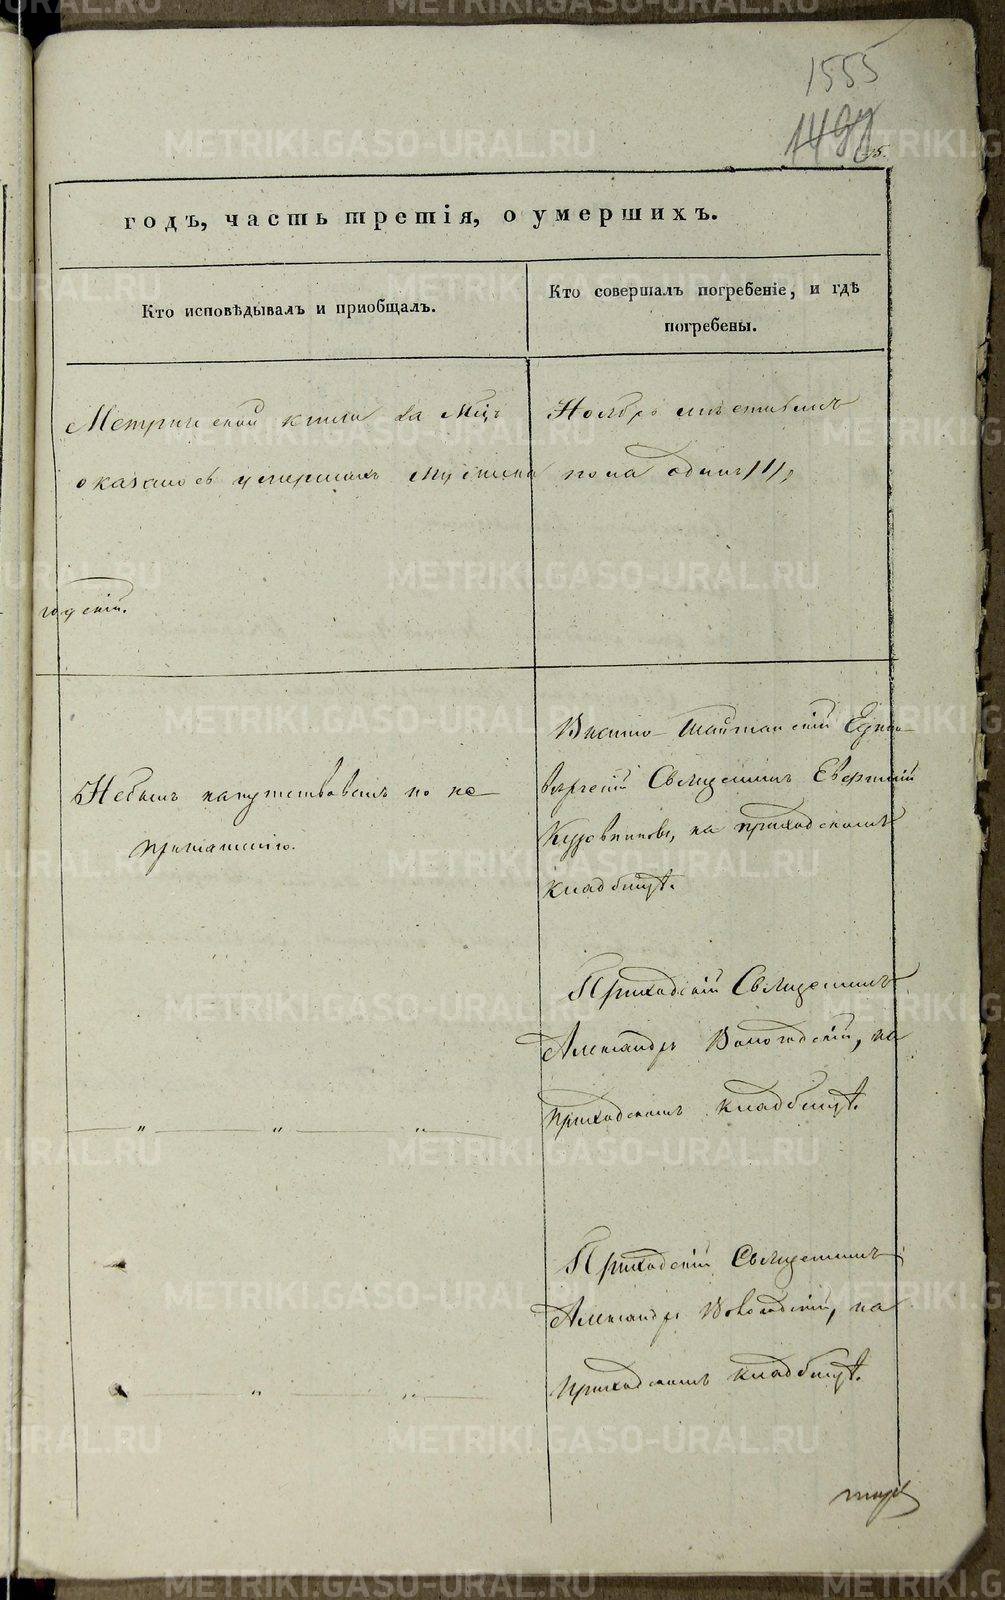 1555
годъ, часть третія, о умершихъ.
Кто исповѣдывалъ и пріобщалъ.
Кто совершалъ погребеніе, и гдѣ
погребены.
Метрической книги за Мцъ Ноябрь
оказалось умершихъ мужеска пола одинъ /1/,
Небылъ напутствованъ по не-
притчанію.
Висимо-Шайтанскій Едино-
вѣрческій Священникъ Евергетій
на приходскомъ
кладбищѣ.
Приходскій Священникъ
Александръ Вологодскій, на
приходскомъ кладбищѣ.
" " "
Приходскій Священникъ
Александръ Вологодскій, на
приходскомъ кладбищѣ.
" "
METRIKI.GASO-URAL.RU